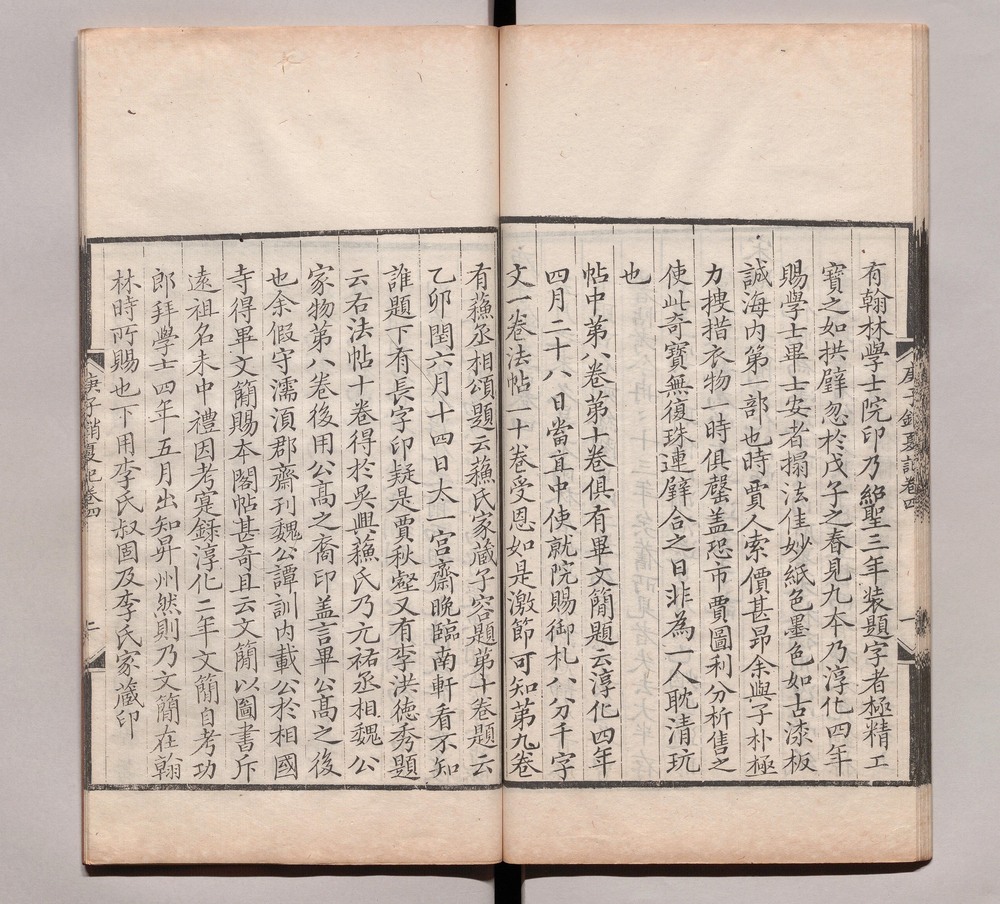 有翰林學士院印乃紹聖三年裝題字者極精工
寶之如拱璧忽於戊子之春見九本乃淳化四年
賜學士畢士安者搨法佳妙紙色墨色如古漆板
誠海内第一部也時賈人索價甚昂余與子朴極
力搜措衣物一時俱罄盖恐市賈圖利分析售之
使此奇寶無復珠連璧合之日非為一人耽清玩
也
帖中第八卷第十卷俱有畢文簡題云淳化四年
四月二十八日當直中使就院賜御札八分千字
文一卷法帖一十卷受恩如是激節可知第九卷
有蘓丞相頌題云蘓氏家藏子容題第十卷題云
乙卯閏六月十四日太一宮齋晚臨南軒看不知
誰題下有長字印疑是賈秋壑又有李洪徳秀題
云右法帖十卷得於吳興蘓氏乃元祐丞相魏公
家物第八卷後用公髙之裔印盖言畢公髙之後
也余假守濡湏郡齋刊魏公譚訓内載公於相國
寺得畢文簡賜本閣帖甚奇且云文簡以圖書斥
遠祖名未中禮因考寔録淳化二年文簡自考功
郎拜學士四年五月出知昇州然則乃文簡在翰
林時所賜也下用李氏叔固及李氏家藏印
庚子銷夏記卷四
一
庚子銷夏記卷四
二